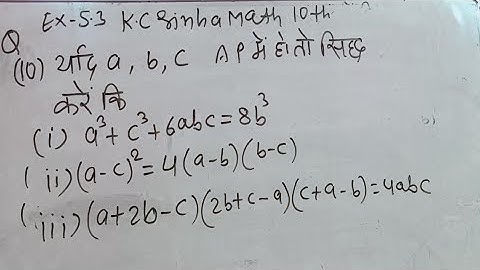 Ex-5.3 K.C Sinha Math 10th
Q
(10) यदि a, b, c AP में हो तो सिद्ध
करें कि
(i) a³+c³+6abc=8b³
(ii) (a-c)²=4(a-b)(b-c)
(iii) (a+2b-c)(2b+c-a)(c+a-b)=4abc